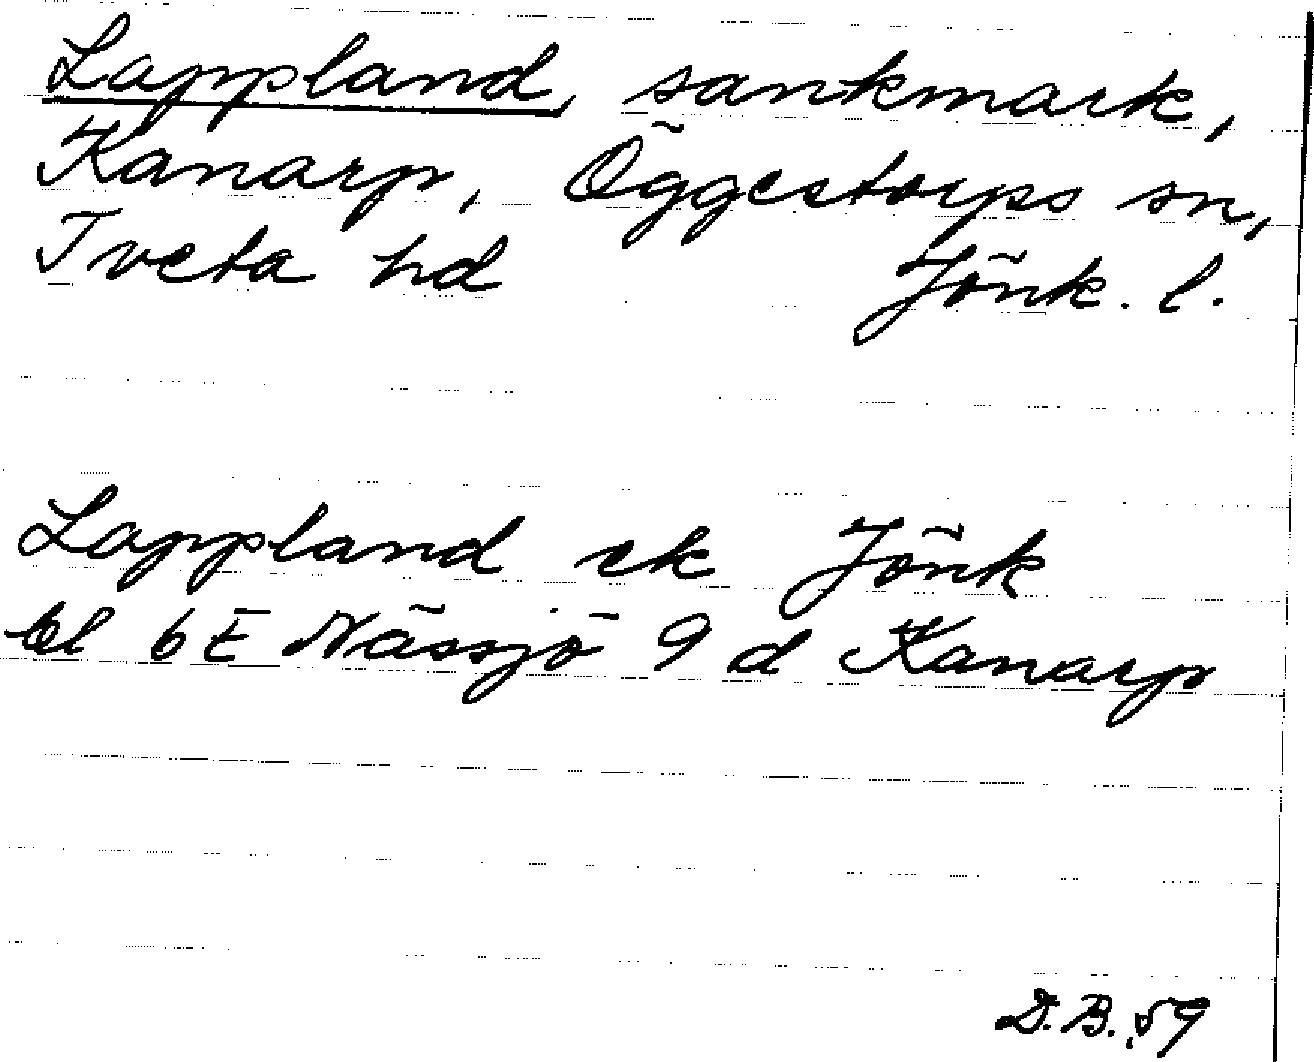 Lappland, sankmark,
Kanarp, Öggestorps sn,
Tveta hd Jönk. l.
Lappland ek Jönk
bl 6E Nässjö 9 d Kanarp
D.B. 59